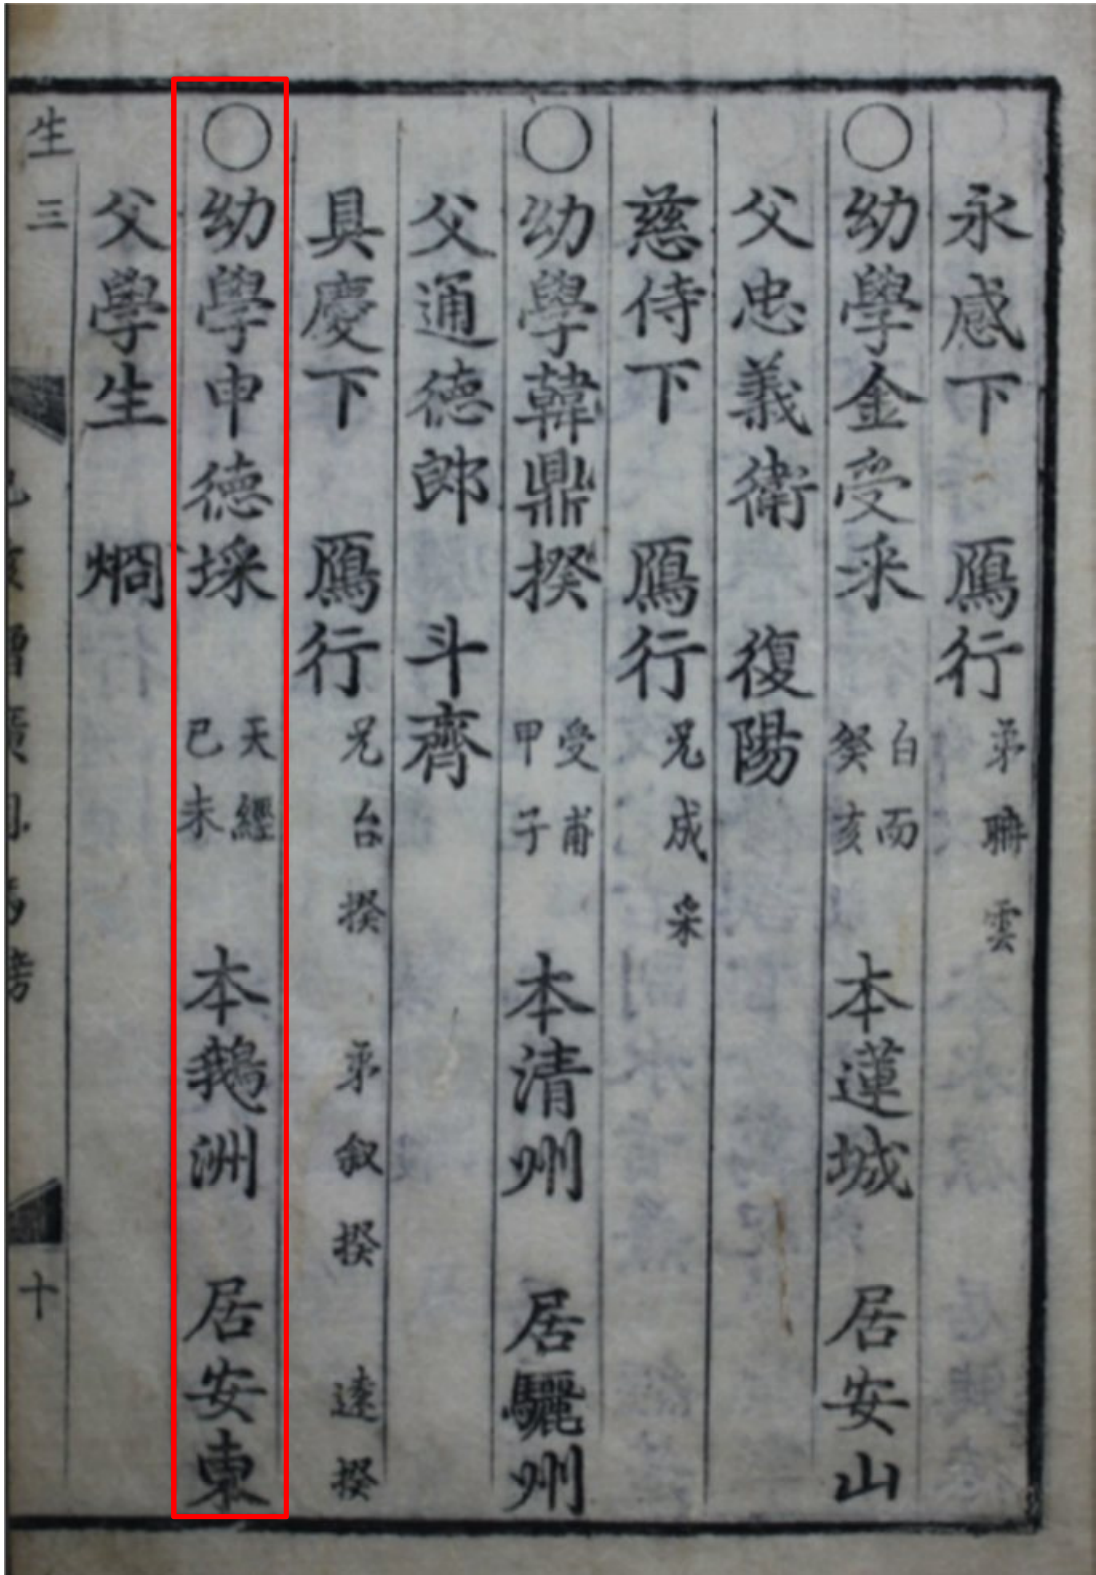 永感下 鴈行 弟聃雲
○幼學金受采 白而癸亥 本蓮城 居安山
父忠義衛 復陽
慈侍下 鴈行 兄成采
○幼學韓鼎揆 受甫甲子 本清州 居驪州
父通德郎 斗齊
具慶下 鴈行 兄台揆 弟叙揆 遠揆
○幼學申德埰 天經己未 本鵝洲 居安東
父學生 烱
生三 十